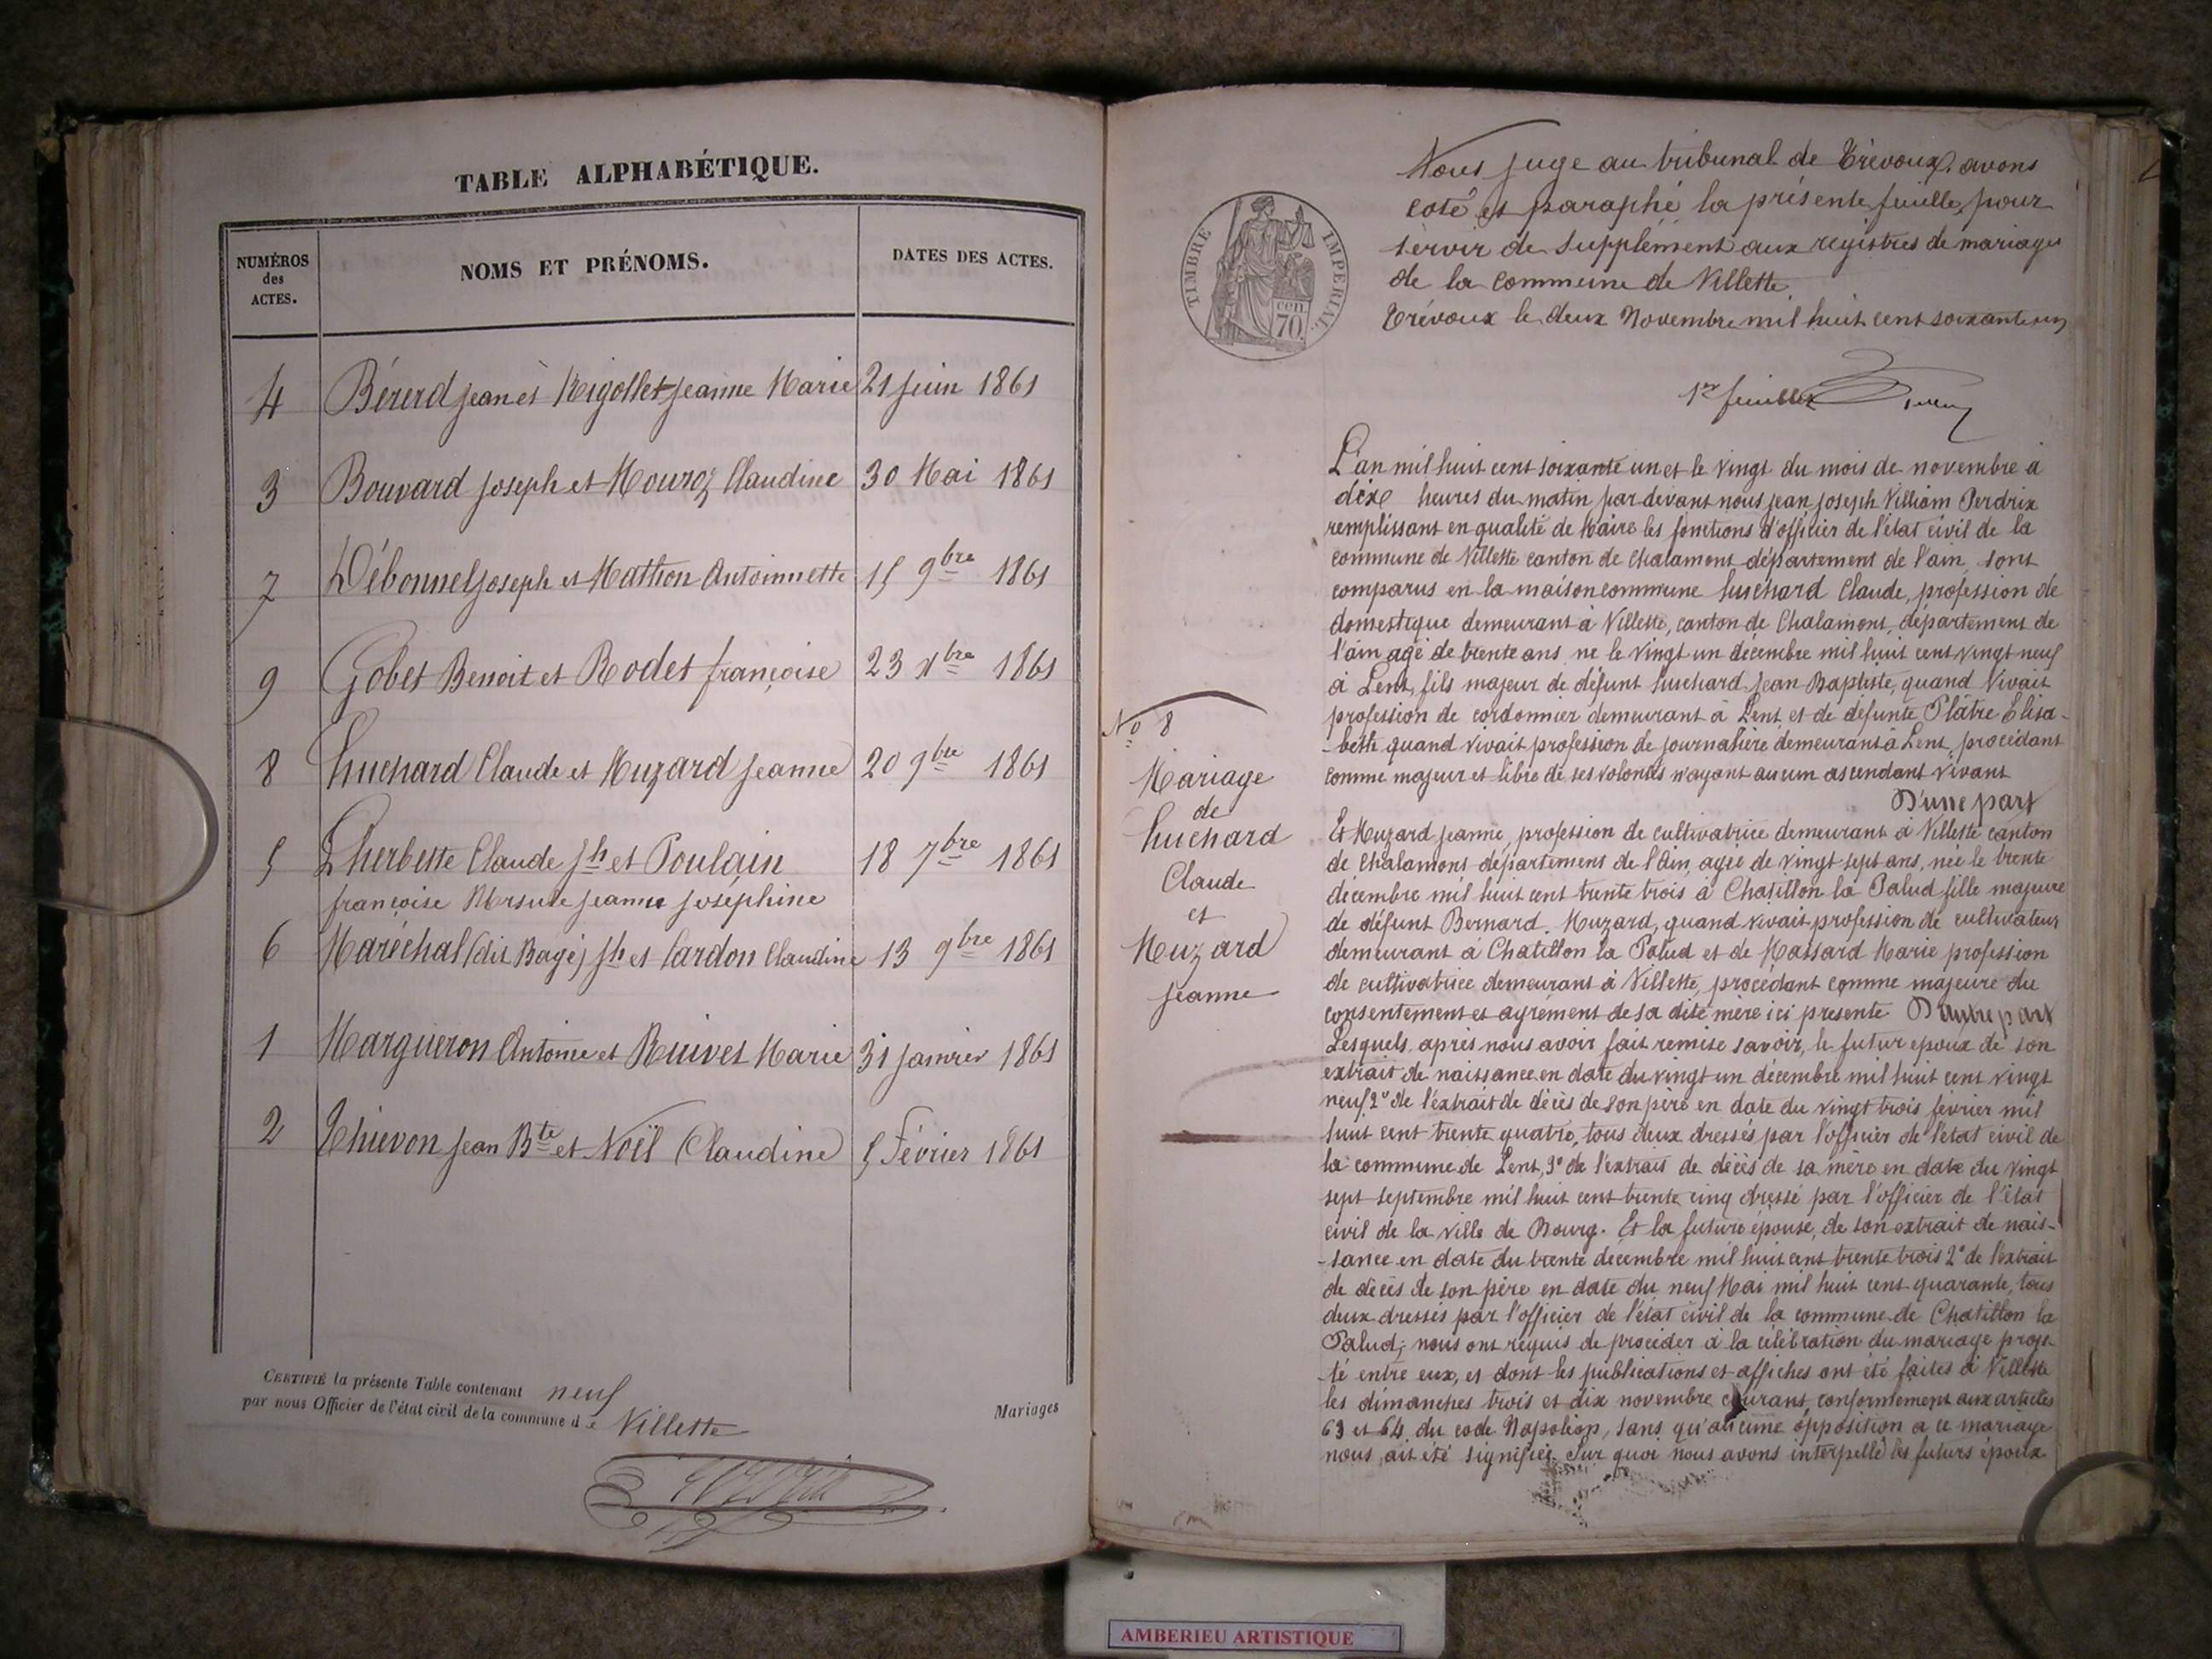 TABLE ALPHABÉTIQUE.
NUMÉROS des ACTES.
NOMS ET PRÉNOMS.
DATES DES ACTES.
4 Bérerd jean et Rigollet jeanne Marie 21 juin 1861
3 Bouvard joseph et Mouroz Claudine 30 Mai 1861
7 Débonnel joseph et Mathon Antoinnette 15 9bre 1861
9 Gobet Benoit et Rodet françoise 23 Xbre 1861
8 huchard Claude et Muzard jeanne 20 9bre 1861
5 Lherbette Claude Jh et Poulain 18 7bre 1861
françoise Ursule jeanne joséphine
6 Maréchal (dit Bagé) Jh et Cardon Claudine 13 9bre 1861
1 Margueron Antoine et Ruivet Marie 31 janvier 1861
2 Thievon jean Bte et Noël Claudine 5 Février 1861
CERTIFIÉ la présente Table contenant neuf
par nous Officier de l'état civil de la commune de Villette
Mariages
TIMBRE IMPÉRIAL
cen
70
Nous juge au tribunal de Trévoux, avons
coté et paraphé la présente feuille, pour
servir de supplément aux registres de mariages
de la commune de Villette
Trévoux le deux Novembre mil huit cent soixante un
1re feuille
No 8
Mariage
de
huchard
Claude
et
Muzard
jeanne
L'an mil huit cent soixante un et le vingt du mois de novembre à
dix heures du matin par devant nous jean joseph Villiam Perdrix
remplissant en qualité de Maire les fonctions d'officier de l'état civil de la
commune de Villette canton de Chalamont département de l'ain, sont
comparus en la maison commune huchard Claude, profession de
domestique demeurant à Villette, canton de Chalamont, département de
l'ain agé de trente ans né le vingt un décembre mil huit cent vingt neuf
à Lent, fils majeur de défunt huchard Jean Baptiste, quand vivait
profession de cordonnier demeurant à Lent et de défunte Plâtre Elisa-
-beth quand vivait profession de journalière demeurant à Lent, procédant
comme majeur et libre de ses volontés n'ayant aucun ascendant vivant
D'une part
Et Muzard jeanne, profession de cultivatrice demeurant à Villette canton
de Chalamont département de l'Ain, agée de vingt sept ans, née le trente
décembre mil huit cent trente trois à Chatillon la Palud fille majeure
de défunt Bernard Muzard, quand vivait profession de cultivateur
demeurant à Chatillon la Palud et de Massard Marie profession
de cultivatrice demeurant à Villette, procédant comme majeure du
consentement et agrément de sa dite mère ici présente D'autre part
Lesquels après nous avoir fait remise savoir, le futur époux de son
extrait de naissance en date du vingt un décembre mil huit cent vingt
neuf 2º de l'extrait de décès de son père en date du vingt trois février mil
huit cent trente quatre, tous deux dressés par l'officier de l'état civil de
la commune de Lent, 3º de l'extrait de décès de sa mère en date du vingt
sept septembre mil huit cent trente cinq dressé par l'officier de l'état
civil de la ville de Bourg. Et la future épouse, de son extrait de nais-
-sance en date du trente décembre mil huit cent trente trois 2º de l'extrait
de décès de son père en date du neuf Mai mil huit cent quarante, tous
deux dressés par l'officier de l'état civil de la commune de Chatillon la
Palud; nous ont requis de procéder à la célébration du mariage proje-
-té entre eux, et dont les publications et affiches ont été faites à Villette
les dimanches trois et dix novembre courant, conformément aux articles
63 et 64 du code Napoléon, sans qu'aucune opposition a ce mariage
nous ait été signifiée. Sur quoi nous avons interpellé les futurs époux
AMBERIEU ARTISTIQUE